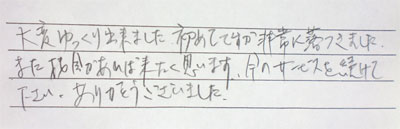 大変ゆっくり出来ました 初めてですが非常に落つきました.
また機会があれば来たく思います. 今のサービスを続けて
下さい. ありがとうございました.